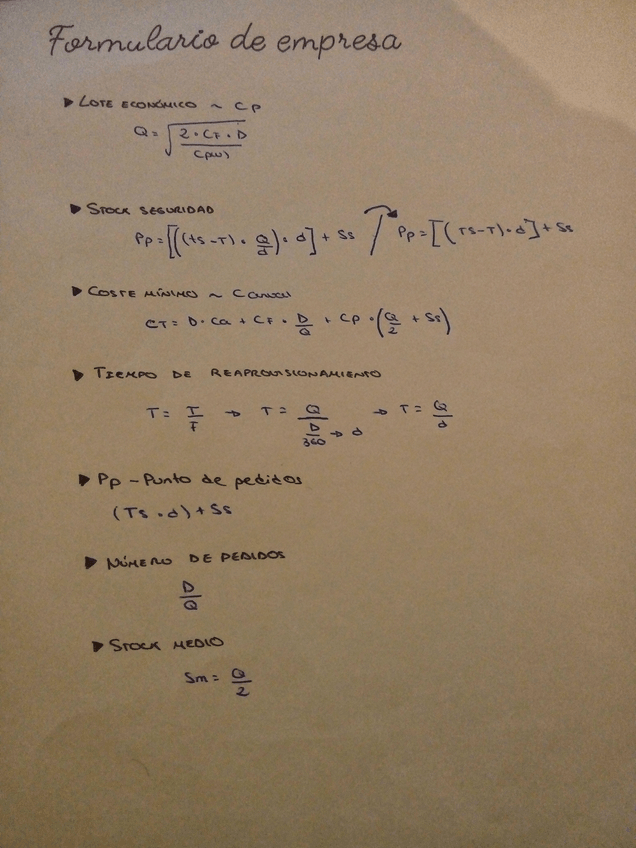 Formulario de empresa
▶ LOTE ECONÓMICO ~ CP
Q = √(2 · CF · D / CP(W))
▶ STOCK SEGURIDAD
Pp = [((ts - T) · Q/d) · d] + Ss / Pp = [(TS - T) · d] + Ss
▶ COSTE MÍNIMO ~
CT = D · Ca + CF · D/Q + CP · (Q/2 + Ss)
▶ TIEMPO DE REAPROVISIONAMIENTO
T = T/F → T = Q / (D/360 → d) → T = Q/d
▶ Pp - Punto de pedidos
(Ts · d) + Ss
▶ NÚMERO DE PEDIDOS
D/Q
▶ STOCK MEDIO
Sm = Q/2